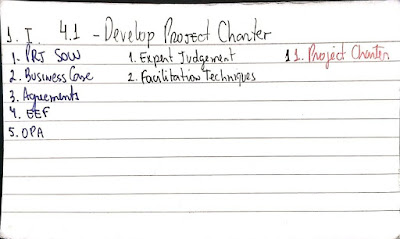 1. I. 4.1 - Develop Project Charter
1. PRJ SOW 1. Expert Judgement 1 1. Project Charter
2. Business Case 2. Facilitation Techniques
3. Agreements
4. EEF
5. OPA